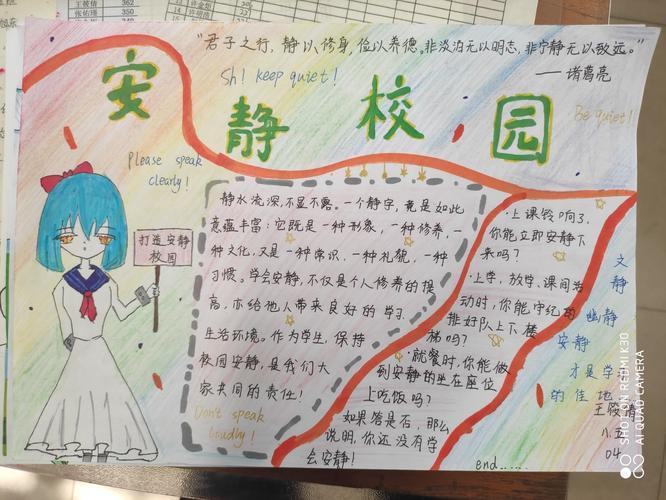 362
350
"君子之行，静以修身，俭以养德。非淡泊无以明志，非宁静无以致远。"
——诸葛亮
Sh! keep quiet!
安静校园
Be quiet!
Please speak
clearly!
打造安静
校园
静水流深，不显不露。一个静字，竟是如此
意蕴丰富：它既是一种形象，一种修养，一
种文化，又是一种常识，一种礼貌，一种
习惯。学会安静，不仅是个人修养的提
高，亦给他人带来良好的学习、
生活环境。作为学生，保持
校园安静，是我们大
家共同的责任！
Don't speak
loudly!
·上课铃响了，
你能立即安静下
来吗？
·上学，放学，课间活
动时，你能守纪的
排好队上下楼
梯吗？
·就餐时，你能做
到安静的坐在座位
上吃饭吗？
如果答是否，那么
说明，你还没有学
会安静！
文
静
幽静
安静
才是学
的佳地
八.五
04
end.....
SHOT ON REDMI K30
AI QUAD CAMERA